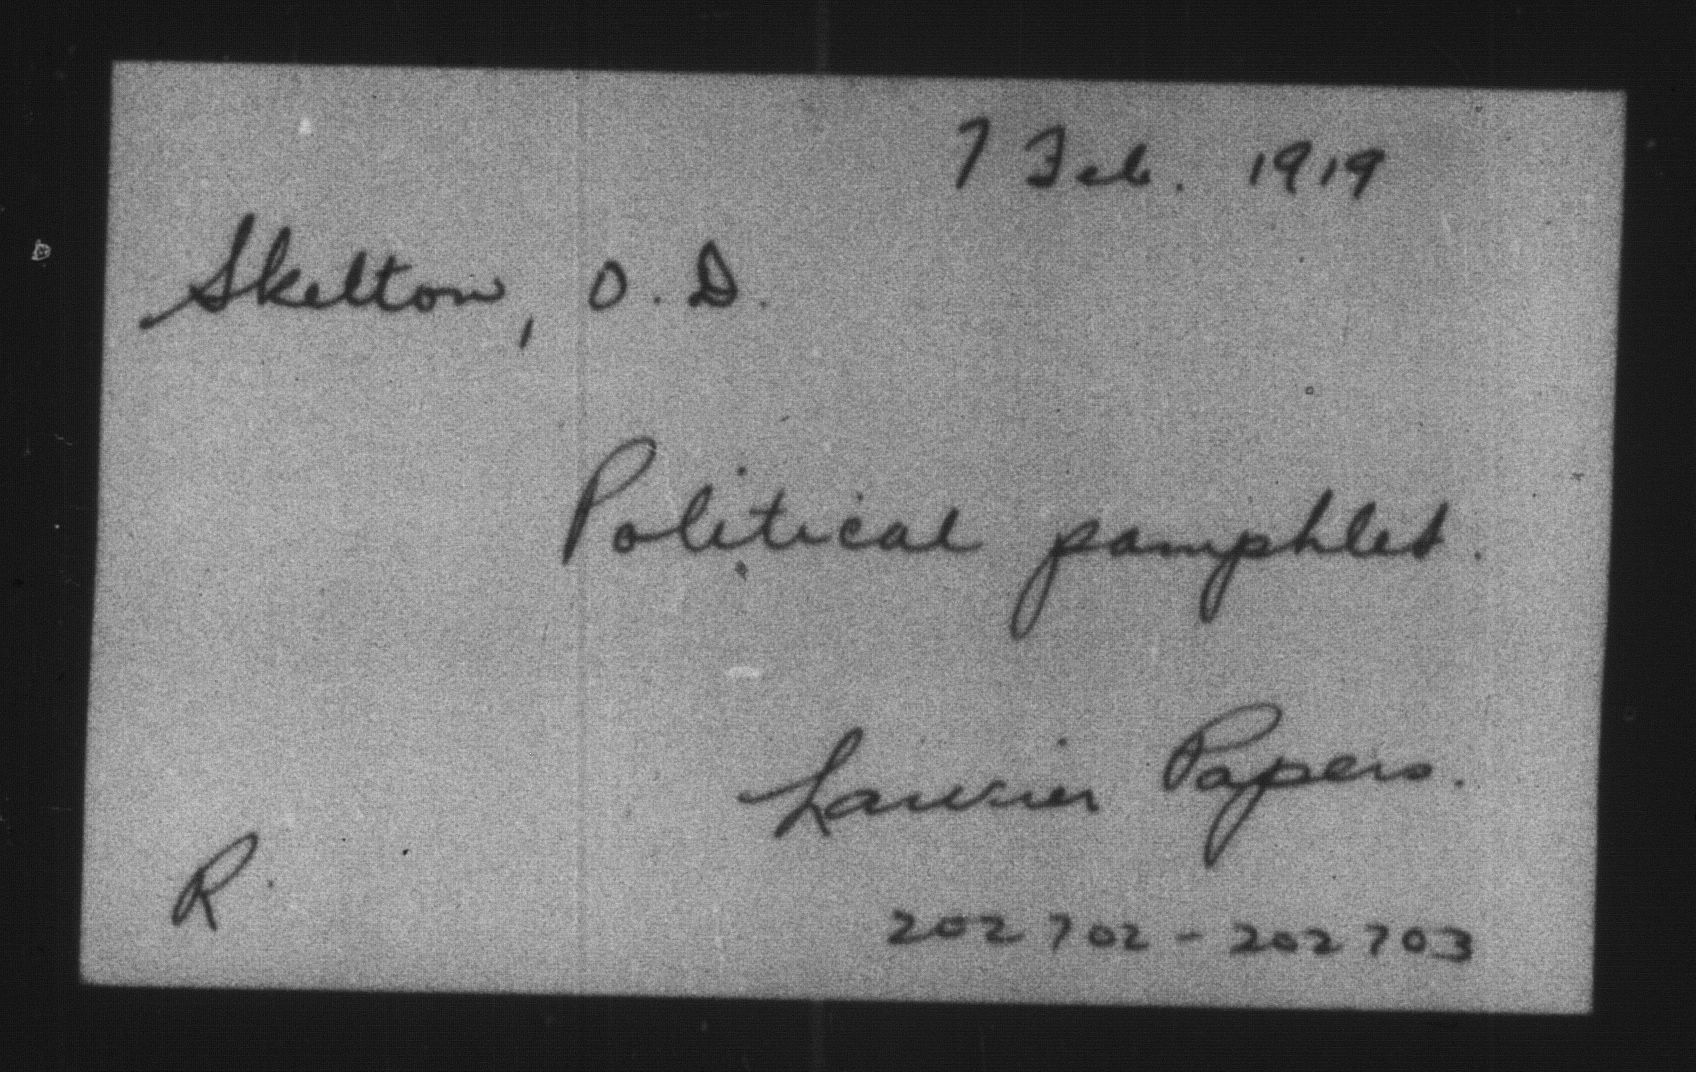 7 Feb. 1919
Skelton, O. D.
Political pamphlet.
Laurier Papers.
R
202702-202703